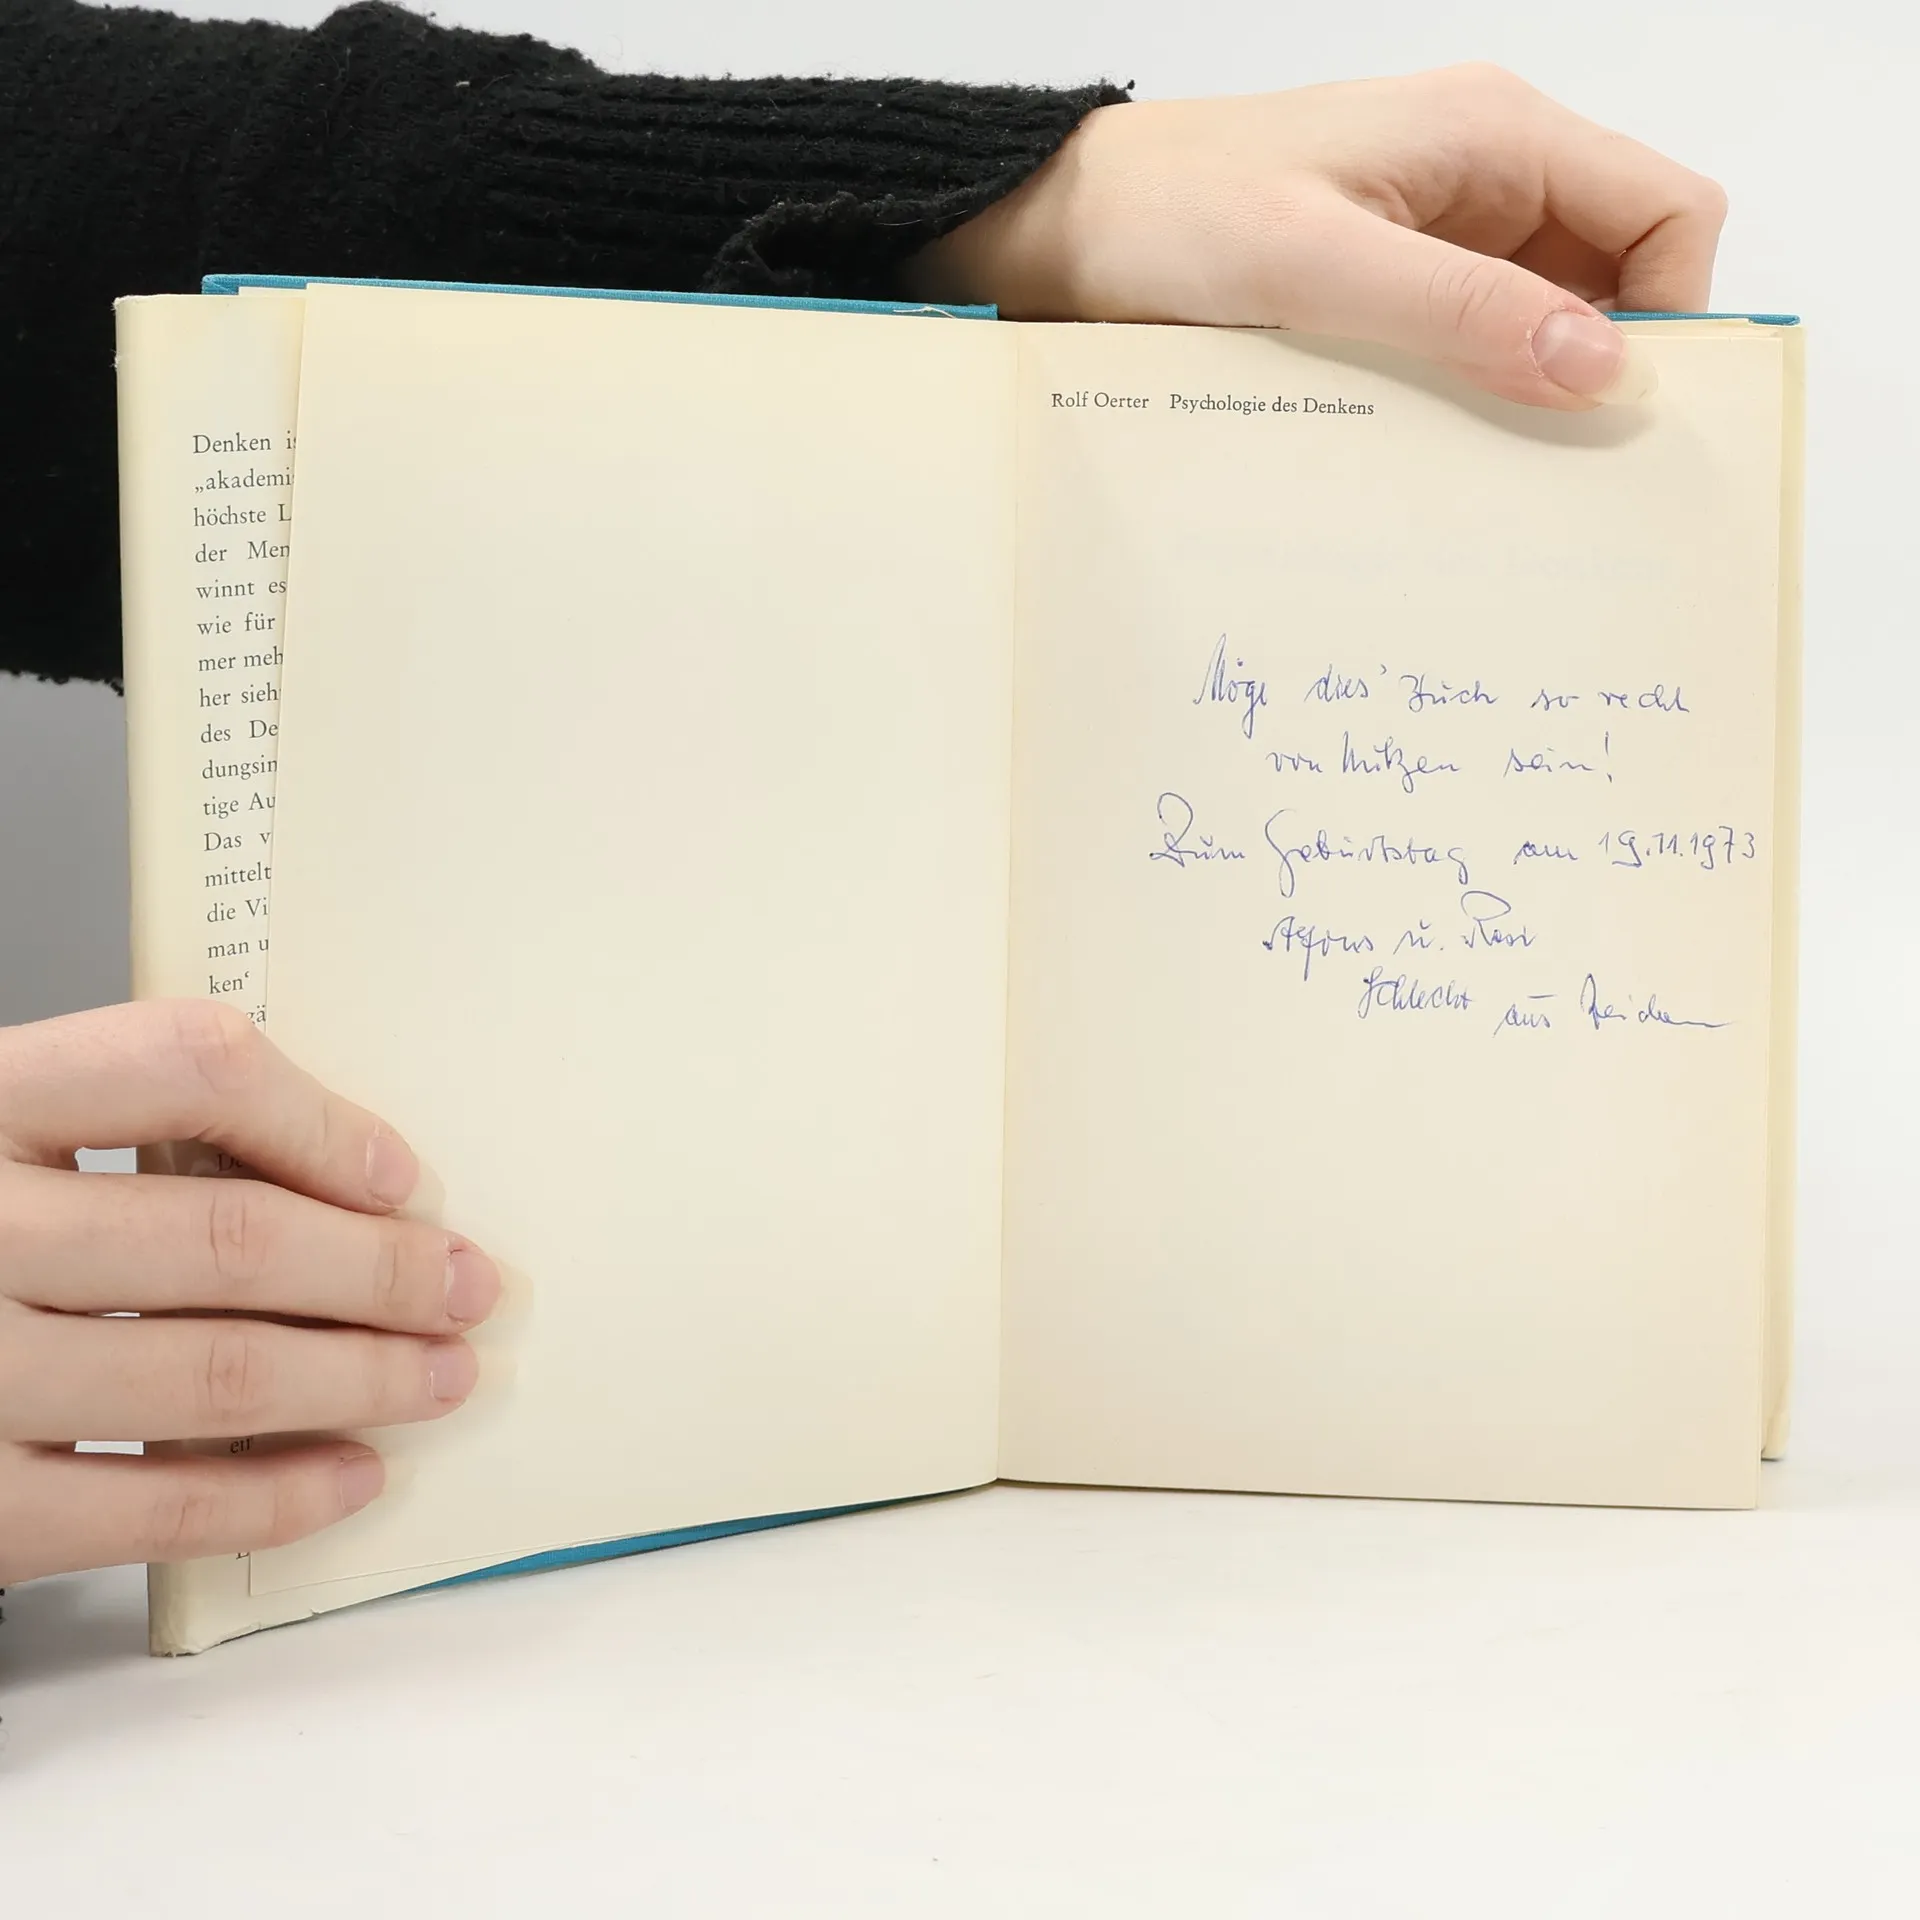 Denken
„akademi
höchste L
der Men
winnt es
wie für
mer meh
her sieh
des De
dungsin
tige Au
Das v
mittelt
die Vi
man u
ken‘
gä
De
ein
Rolf Oerter Psychologie des Denkens
Möge dies' Buch so recht
von Nutzen sein!
Zum Geburtstag am 19.11.1973
Alfons u. Resi
Schlecht aus